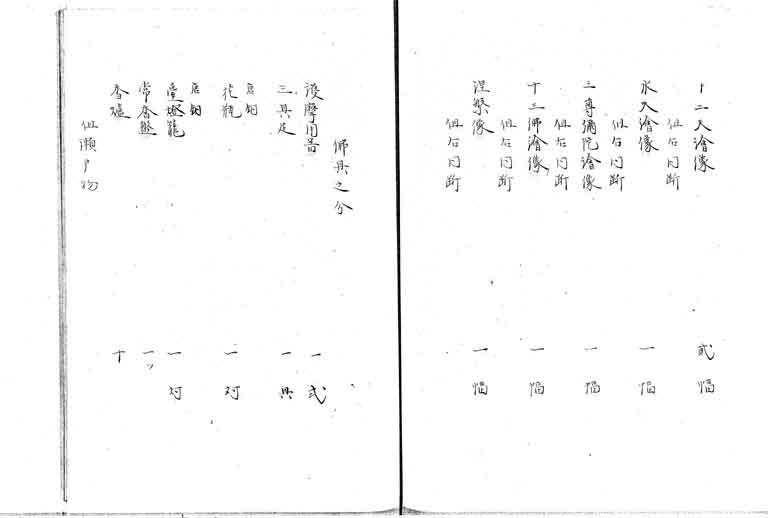 十二天繪像 弐幅
但右同断
水天繪像 一幅
但右同断
三尊彌陀繪像 一幅
但右同断
十三佛繪像 一幅
但右同断
涅槃像 一幅
但右同断
佛具之分
護摩用器 一式
三具足 一具
唐銅
花瓶 一对
唐銅
燈籠 一对
常香盤 一ツ
香爐 十
但瀬戸物